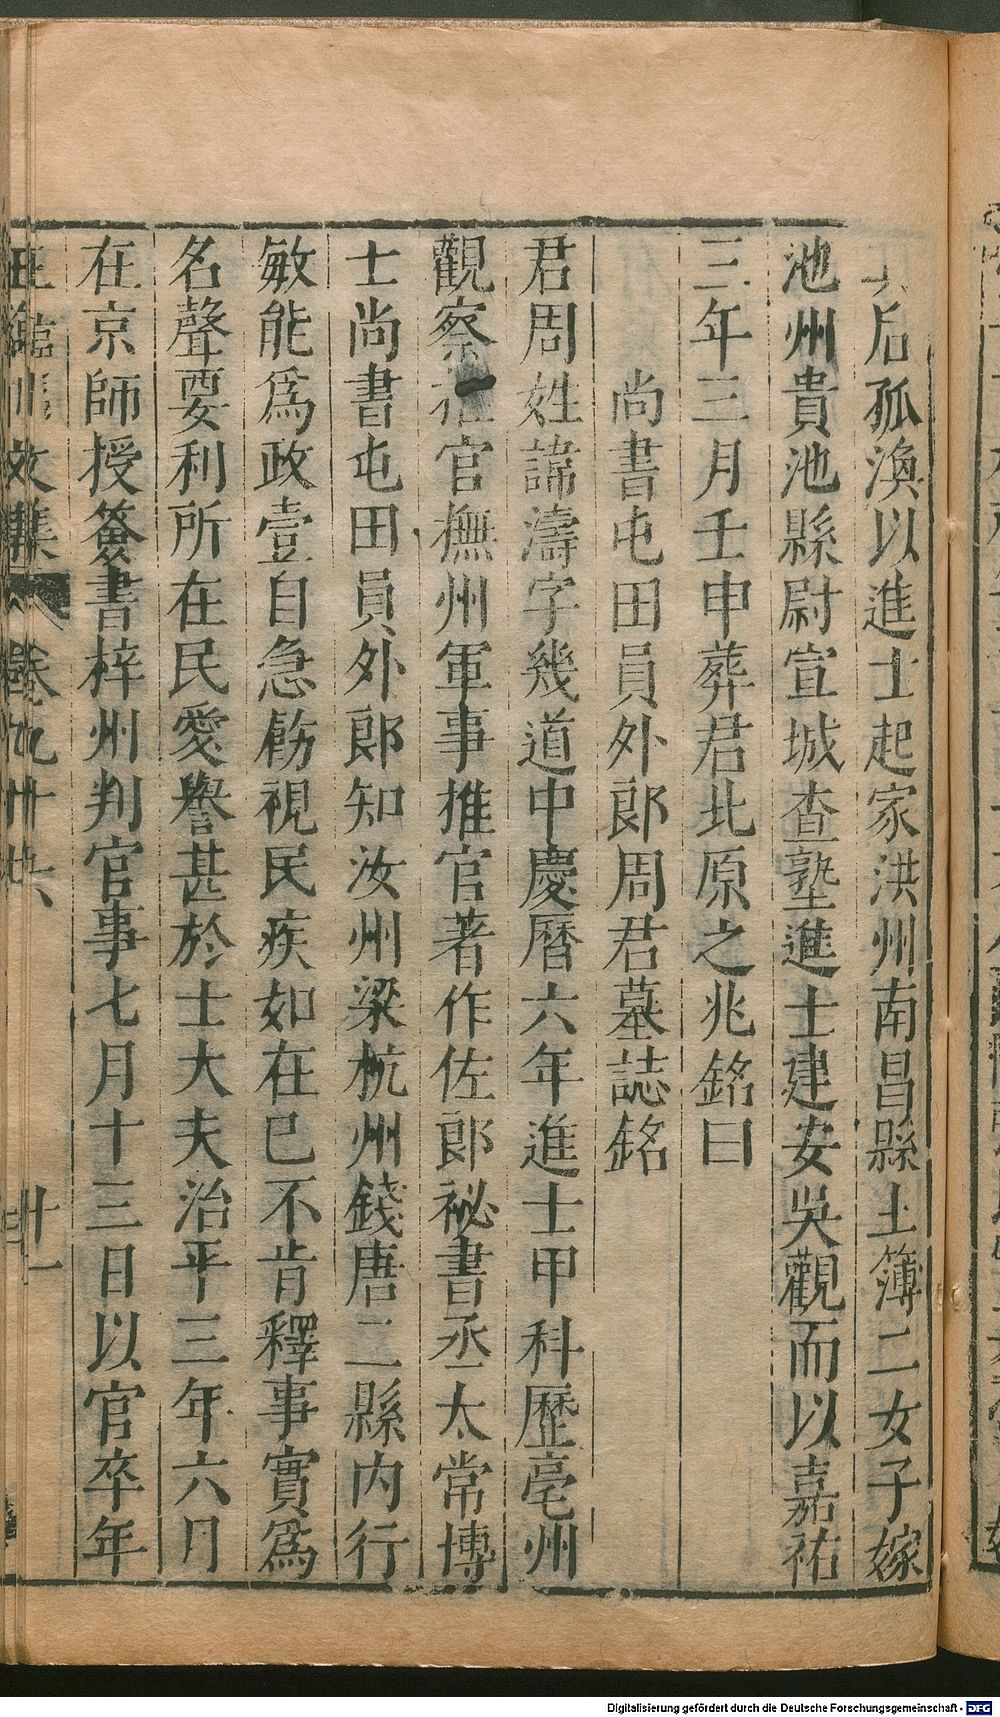 后孤渙以進士起家洪州南昌縣主簿二女子嫁
池州貴池縣尉宣城查塾進士建安吳觀而以嘉祐
三年三月壬申葬君北原之兆銘曰
尚書屯田員外郎周君墓誌銘
君周姓諱濤字幾道中慶曆六年進士甲科歷亳州
觀察官撫州軍事推官著作佐郎祕書丞太常博
士尚書屯田員外郎知汝州梁杭州錢唐二縣內行
敏能為政壹自急飭視民疾如在已不肯釋事實為
名聲要利所在民愛譽甚於士大夫治平三年六月
在京師授簽書梓州判官事七月十三日以官卒年
王臨川文集 卷九十六 十一
Digitalisierung gefördert durch die Deutsche Forschungsgemeinschaft - DFG